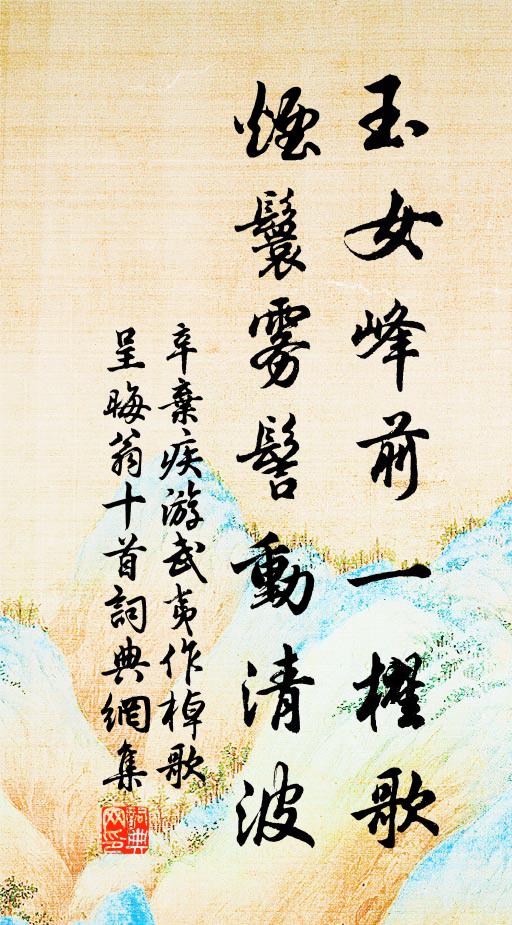 玉女峰前一櫂歌
煙鬟雾髻動清波
辛棄疾游武夷作棹歌
呈晦翁十首詞典網集